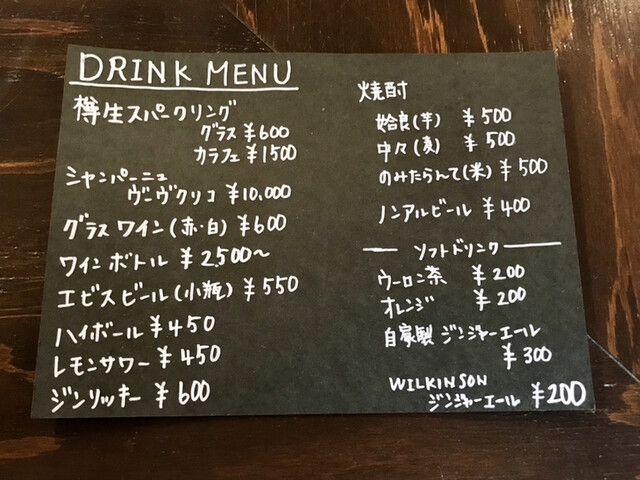 DRINK MENU
樽生スパークリング
グラス ¥600
カラフェ ¥1500
シャンパーニュ
ヴーヴクリコ ¥10,000
グラスワイン(赤・白) ¥600
ワインボトル ¥2,500〜
エビスビール(小瓶) ¥550
ハイボール ¥450
レモンサワー ¥450
ジンリッキー ¥600
焼酎
姶良(芋) ¥500
中々(麦) ¥500
のみたらんて(米) ¥500
ノンアルビール ¥400
ソフトドリンク
ウーロン茶 ¥200
オレンジ ¥200
自家製 ジンジャーエール
¥300
WILKINSON
ジンジャーエール ¥200